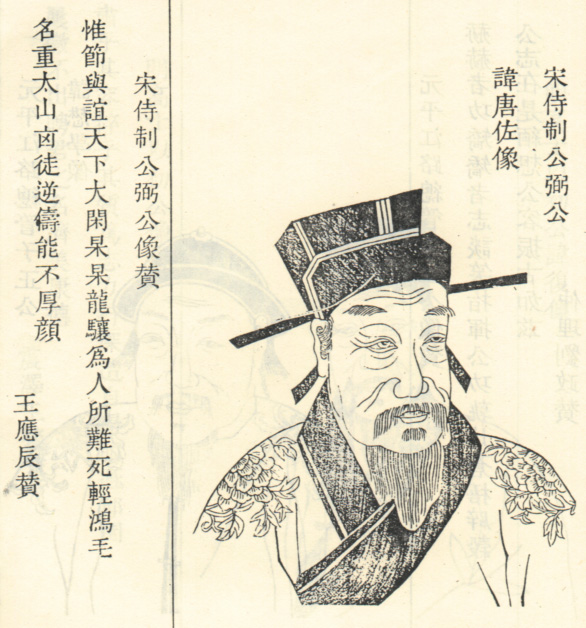 宋侍制公弼公
諱唐佐像
宋侍制公弼公像賛
惟節與誼天下大閑杲杲龍驤爲人所難死輕鴻毛
名重太山卤徒逆儔能不厚顔
王應辰賛